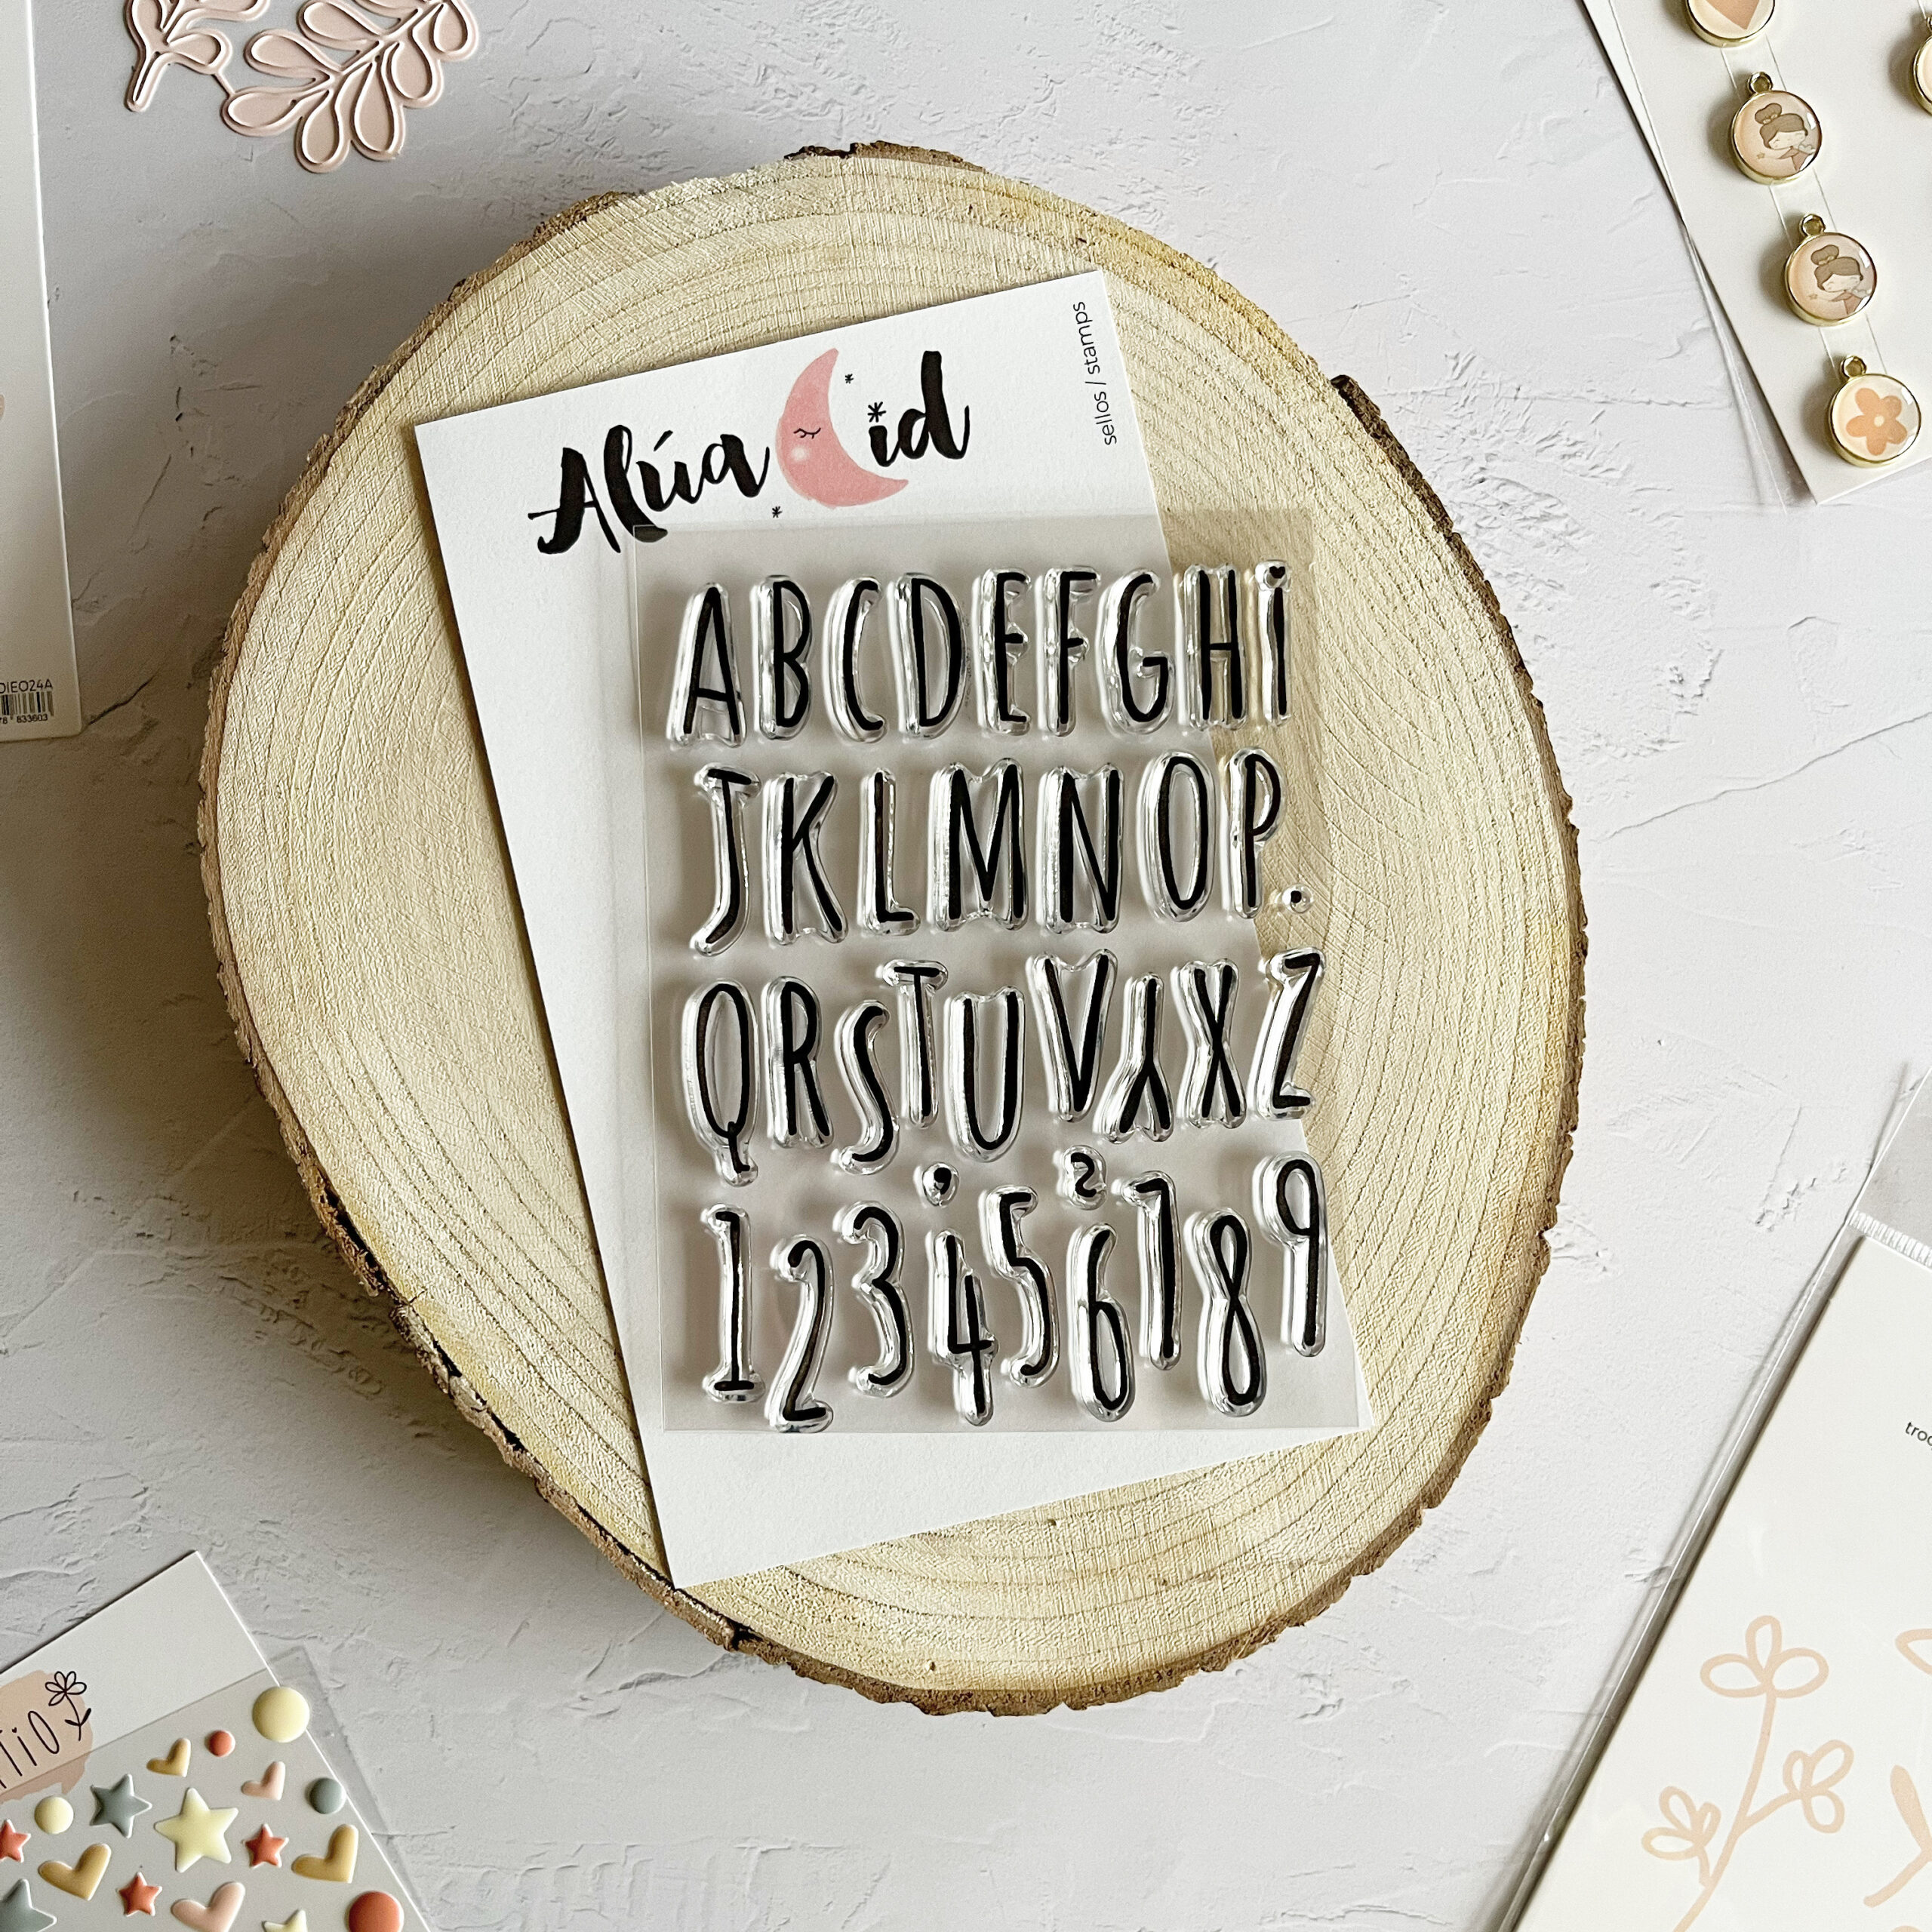 Alúa Cid
sellos / stamps
ABCDEFGHi
JKLMNOP.
QRSTUVYXZ
, ~
123456789
DIE024A
833603